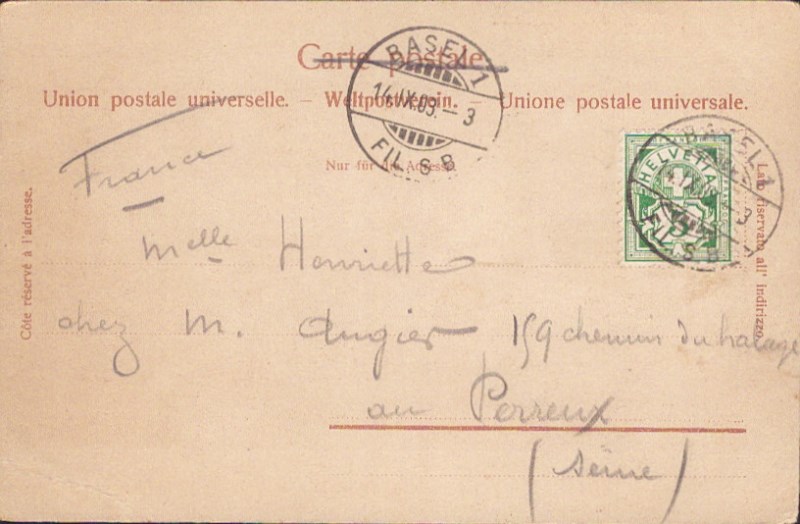 Carte postale.
Union postale universelle. – Weltpostverein. – Unione postale universale.
Nur für die Adresse.
BASEL 1
14.IX.03.–3
FIL. S B
HELVETIA
5
BASEL 1
–3
FIL. S B
Côte réservé à l'adresse.
Lato riservato all' indirizzo.
France
Melle Henriette
chez M. Angier 159 chemin du halage
au Perreux
(Seine)